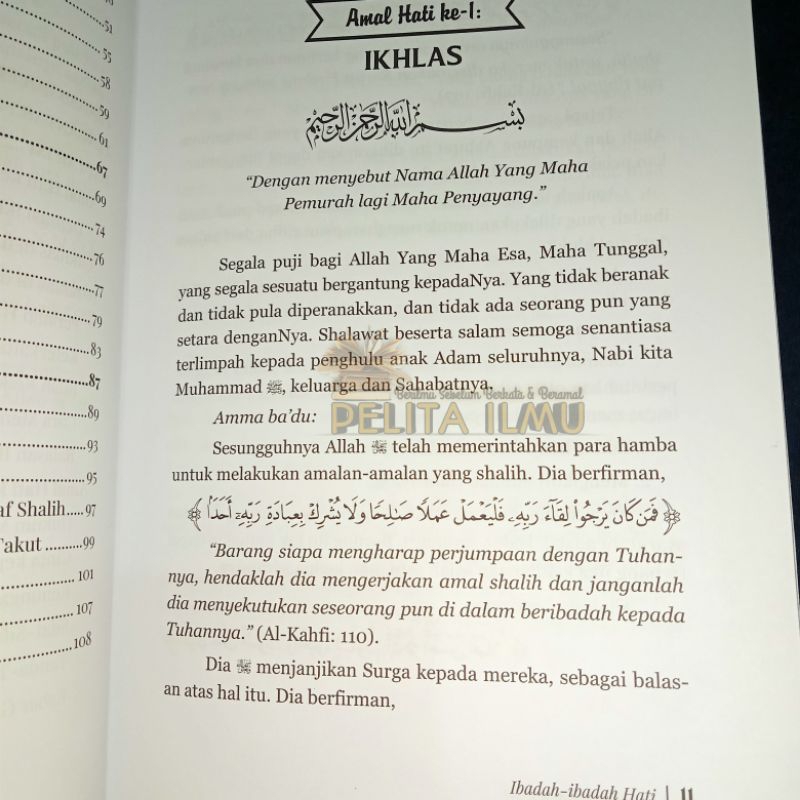 51
55
58
59
61
67
69
74
76
77
79
83
87
89
93
95
af Shalih.....97
Takut ..........99
101
107
108
Amal Hati ke-1:
IKHLAS
بِسْمِ اللهِ الرَّحْمٰنِ الرَّحِيْمِ
“Dengan menyebut Nama Allah Yang Maha
Pemurah lagi Maha Penyayang.”
Segala puji bagi Allah Yang Maha Esa, Maha Tunggal,
yang segala sesuatu bergantung kepadaNya. Yang tidak beranak
dan tidak pula diperanakkan, dan tidak ada seorang pun yang
setara denganNya. Shalawat beserta salam semoga senantiasa
terlimpah kepada penghulu anak Adam seluruhnya, Nabi kita
Muhammad ﷺ, keluarga dan Sahabatnya.
Berilmu Sebelum Berkata & Beramal
PELITA ILMU
Amma ba’du:
Sesungguhnya Allah telah memerintahkan para hamba
untuk melakukan amalan-amalan yang shalih. Dia berfirman,
﴿فَمَن كَانَ يَرْجُوا۟ لِقَآءَ رَبِّهِۦ فَلْيَعْمَلْ عَمَلًا صَـٰلِحًا وَلَا يُشْرِكْ بِعِبَادَةِ رَبِّهِۦٓ أَحَدًۢا﴾
“Barang siapa mengharap perjumpaan dengan Tuhan-
nya, hendaklah dia mengerjakan amal shalih dan janganlah
dia menyekutukan seseorang pun di dalam beribadah kepada
Tuhannya.” (Al-Kahfi: 110).
Dia menjanjikan Surga kepada mereka, sebagai balas-
an atas hal itu. Dia berfirman,
Ibadah-ibadah Hati | 11